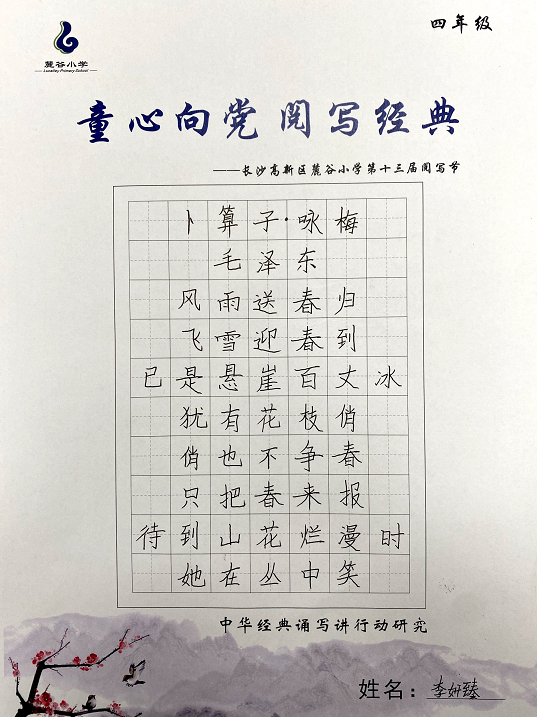 四年级
麓谷小学
Luvalley Primary School
童心向党 阅写经典
——长沙高新区麓谷小学第十三届阅写节
卜算子·咏梅
毛泽东
风雨送春归
飞雪迎春到
已是悬崖百丈冰
犹有花枝俏
俏也不争春
只把春来报
待到山花烂漫时
她在丛中笑
中华经典诵写讲行动研究
姓名：李妍臻